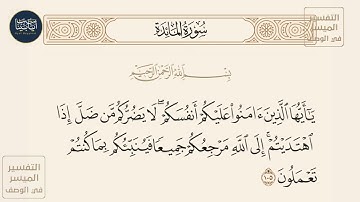 سُورَةُ المَائِدَة
التفسير
الميسر
في الوصف
بِسْمِ ٱللَّهِ ٱلرَّحْمَٰنِ ٱلرَّحِيمِ
يَٰٓأَيُّهَا ٱلَّذِينَ ءَامَنُوا۟ عَلَيْكُمْ أَنفُسَكُمْ ۖ لَا يَضُرُّكُم مَّن ضَلَّ إِذَا
ٱهْتَدَيْتُمْ ۚ إِلَى ٱللَّهِ مَرْجِعُكُمْ جَمِيعًا فَيُنَبِّئُكُم بِمَا كُنتُمْ
تَعْمَلُونَ ١٠٥
التفسير
الميسر
في الوصف